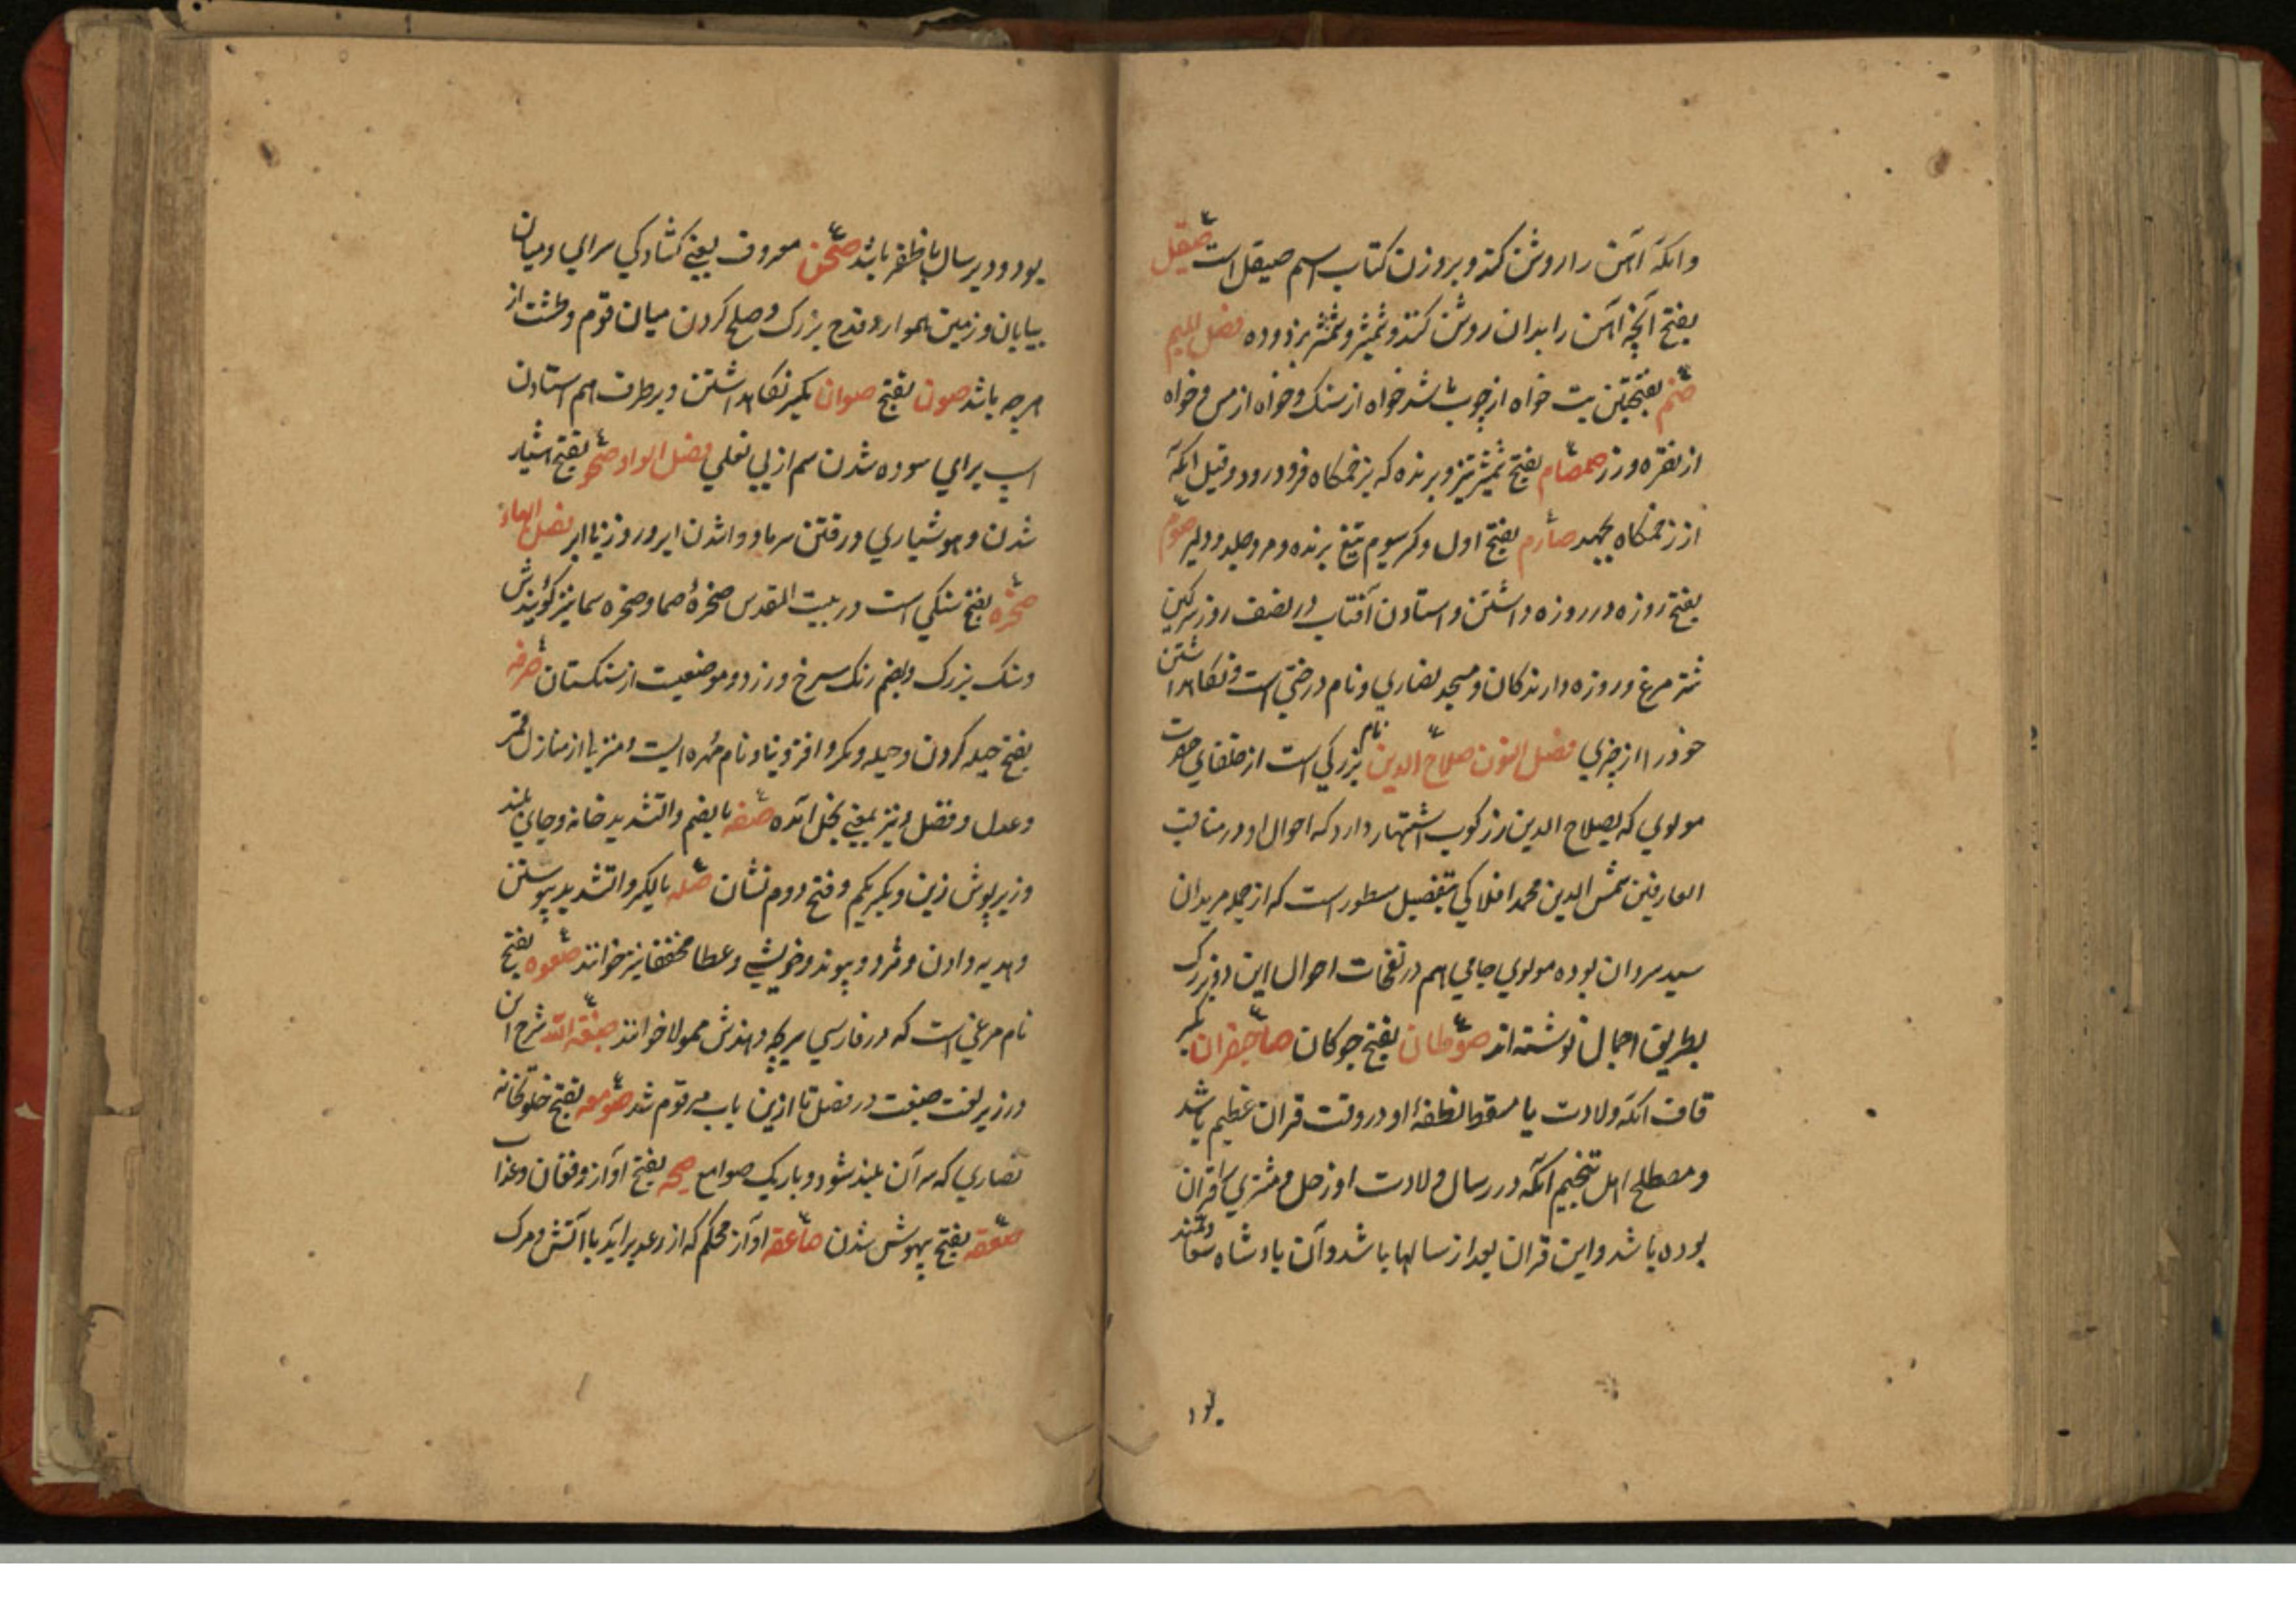 وانکه آهن را روشن کند و بروزن کتاب اسم صیقل است صیقل
بفتح آنچه آهن را بدان روشن کنند و شمشیر و شمشیر بزدوده فصل المیم
صنم بفتحتین بت خواه از چوب باشد خواه از سنک و خواه از مس و خواه
از نقره و زر صمصام بفتح شمشیر تیز و برنده که بزخمکاه فرو درود و قیل انکه
از زخمکاه بجهد صارم بفتح اول و کسر سیوم تیغ برنده و مرد جلد و دلیر صوم
بفتح روزه در روزه داشتن و استادن آفتاب در نصف روز سرکین
شتر مرغ و روزه دارندکان و مسجد نصاری و نام درختی است و نکاهداشتن
خود را از چیزی فصل النون صلاح الدین نام بزرکی است از خلفای حضرت
مولوی که بصلاح الدین زرکوب اشتهار دارد که احوال او در مناقب
العارفین شمس الدین محمد افلاکی بتفصیل مسطور است که از جمله مریدان
سید سردان بوده مولوی جامی هم در نفحات احوال این دو بزرک
بطریق اجمال نوشته اند صوطان بفتح جوکان صاحبقران بکسر
قاف انکه ولادت یا مسقط نطفهٔ او در وقت قران عظیم باشد
و مصطلح اهل تنجیم انکه در سال ولادت او زحل و مشتری را قران
بوده باشد و این قران بعد از سالها باشد و آن بادشاه سعادتمند
بود
بود و دیر سال با ظفر باشد صحن معروف یعنی کشادکی سرای و میان
بیابان و زمین هموار و قدح بزرک و صلح کردن میان قوم و طشت از
هرچه باشد صون بفتح صوان بکسر نکاهداشتن و بر طرف سم استادن
اسپ برای سوده شدن سم از بی نعلی فصل الواو صحو بفتح هشیار
شدن و هوشیاری و رفتن سرما و واشدن ابر و روز بی ابر فصل الهاء
صخره بفتح سنکی است در بیت المقدس صخرهٔ صما و صخره سما نیز کویندش
و سنک بزرک و بضم رنک سرخ و زرد و موضعیت از سنکستان صرفه
بفتح حیله کردن و حیله و مکر و افزونی و نام مهره ایست و منزلی از منازل قمر
و عدل و فضل و نیز بمعنی بخل آمده صفه بالضم والتشدید خانه و جای بلند
و زیرپوش زین و بکسر یکم و فتح دوم نشان صله بالکسر والتشدید پیوستن
و هدیه دادن و مزد و پیوند و خویشی و عطا مخففا نیز خوانند صعوه بفتح
نام مرغی است که در فارسی سریچه و هندش ممولا خوانند صبغة الله شرح ان
در زیر لغت صبغت در فصل تا ازین باب مرقوم شد صومعه بفتح خلوتخانه
نصاری که سر آن بلند شود و باریک صوامع صیحه بفتح آواز و فغان و عذاب
صعقه بفتح بیهوش شدن صاعقه آواز محکم که از رعد برآید با آتش و مرک